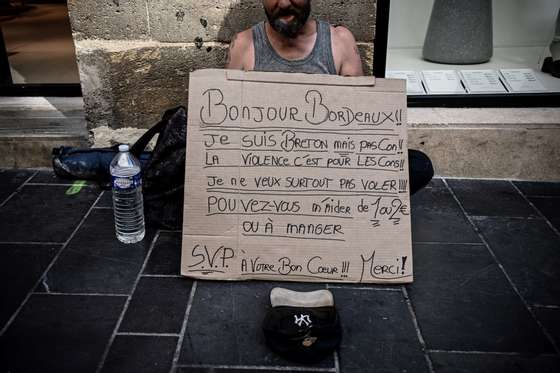 BONJOUR BORDEAUX!!
JE SUIS BRETON MAIS PAS CON!!
LA VIOLENCE C'EST POUR LES CONS!!
JE NE VEUX SURTOUT PAS VOLER!!!!
POUVEZ-VOUS M'AIDER DE 1 OU 2€
OU À MANGER
S.V.P. À VOTRE BON COEUR!!! MERCI!
NY